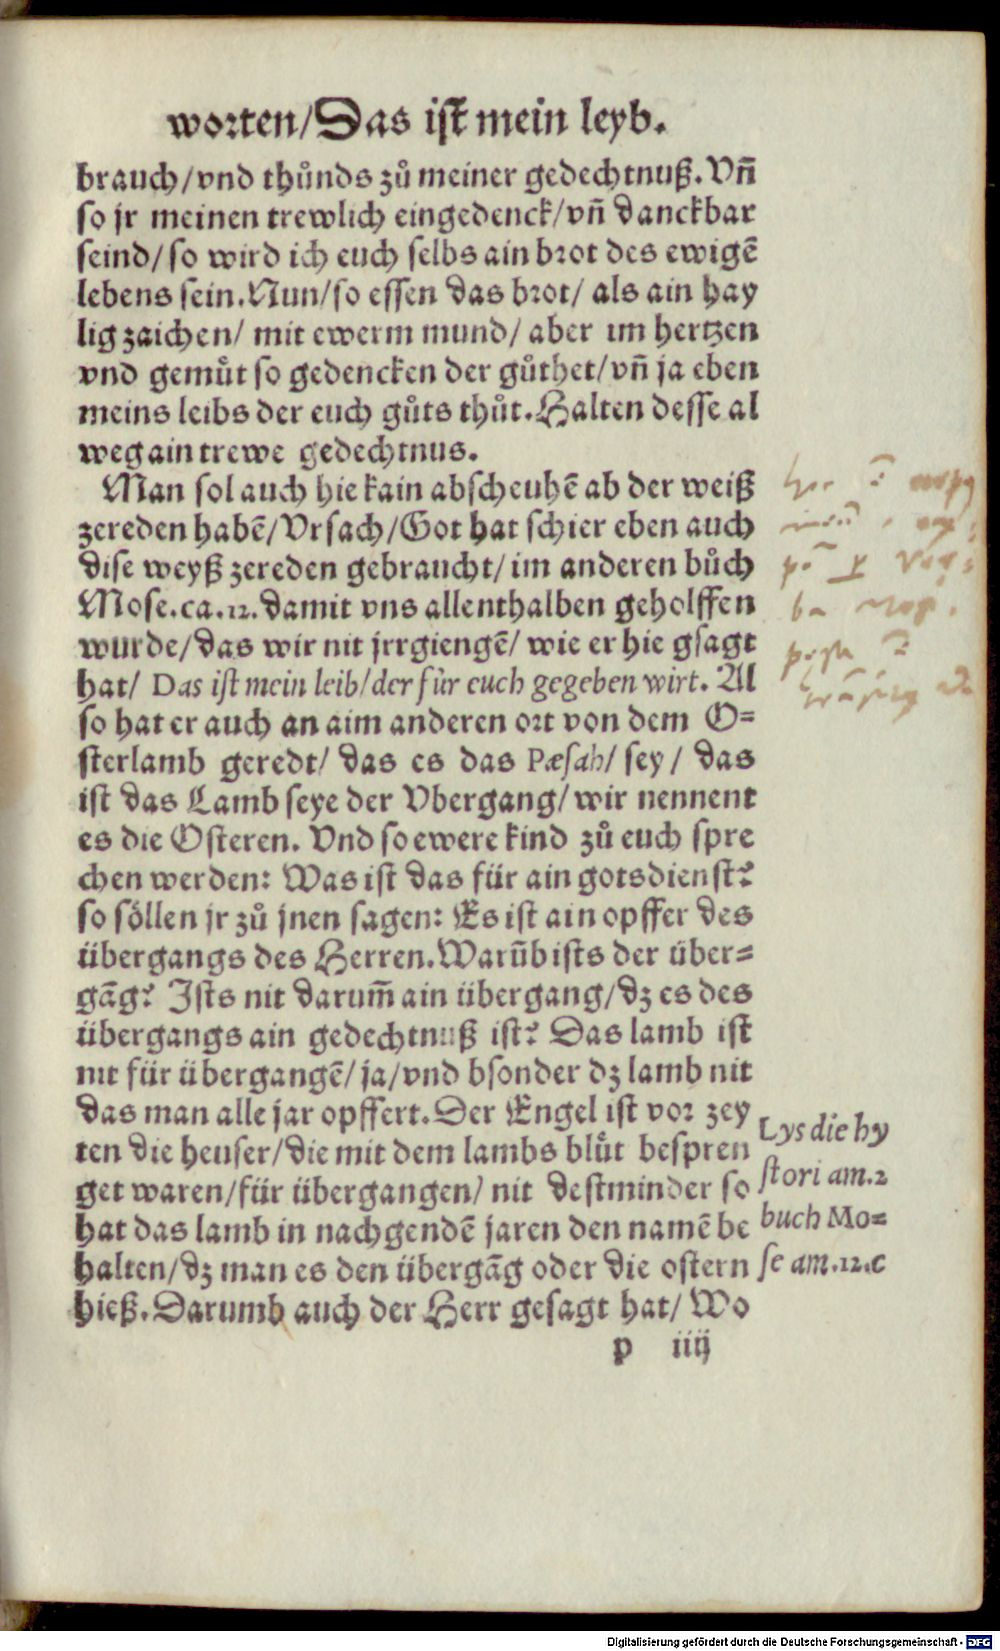 worten/Das ist mein leyb.
brauch/vnd thůnds zů meiner gedechtnuß. Vñ
so jr meinen trewlich eingedenck/vñ danckbar
seind/so wird ich euch selbs ain brot des ewigē
lebens sein. Nun/so essen das brot/ als ain hay
lig zaichen/ mit ewerm mund/ aber im hertzen
vnd gemůt so gedencken der gůthet/vñ ja eben
meins leibs der euch gůts thůt. Halten desse al
weg ain trewe gedechtnus.
Man sol auch hie kain abscheuhē ab der weiß
zereden habē/Vrsach/Got hat schier eben auch
dise weyß zereden gebraucht/im anderen bůch
Mose.ca.12.damit vns allenthalben geholffen
wurde/das wir nit jrrgiengē/ wie er hie gsagt
hat/ Das ist mein leib/der für euch gegeben wirt. Al
so hat er auch an aim anderen ort von dem O=
sterlamb geredt/ das es das Pæsah/ sey/ das
ist das Lamb seye der Vbergang/wir nennent
es die Osteren. Vnd so ewere kind zů euch spre
chen werden: Was ist das für ain gotsdienst?
so söllen jr zů jnen sagen: Es ist ain opffer des
übergangs des Herren. Warūb ists der über=
gāg? Ists nit darum̄ ain übergang/dz es des
übergangs ain gedechtnuß ist? Das lamb ist
nit für übergangē/ja/vnd bsonder dz lamb nit
das man alle jar opffert. Der Engel ist vor zey
ten die heuser/die mit dem lambs blůt bespren
get waren/für übergangen/ nit destminder so
hat das lamb in nachgendē jaren den namē be
halten/dz man es den übergāg oder die ostern
hieß. Darumb auch der Herr gesagt hat/ Wo
p iiij
Lys die hy
stori am.2
buch Mo=
se am.12.c
Digitalisierung gefördert durch die Deutsche Forschungsgemeinschaft - DFG